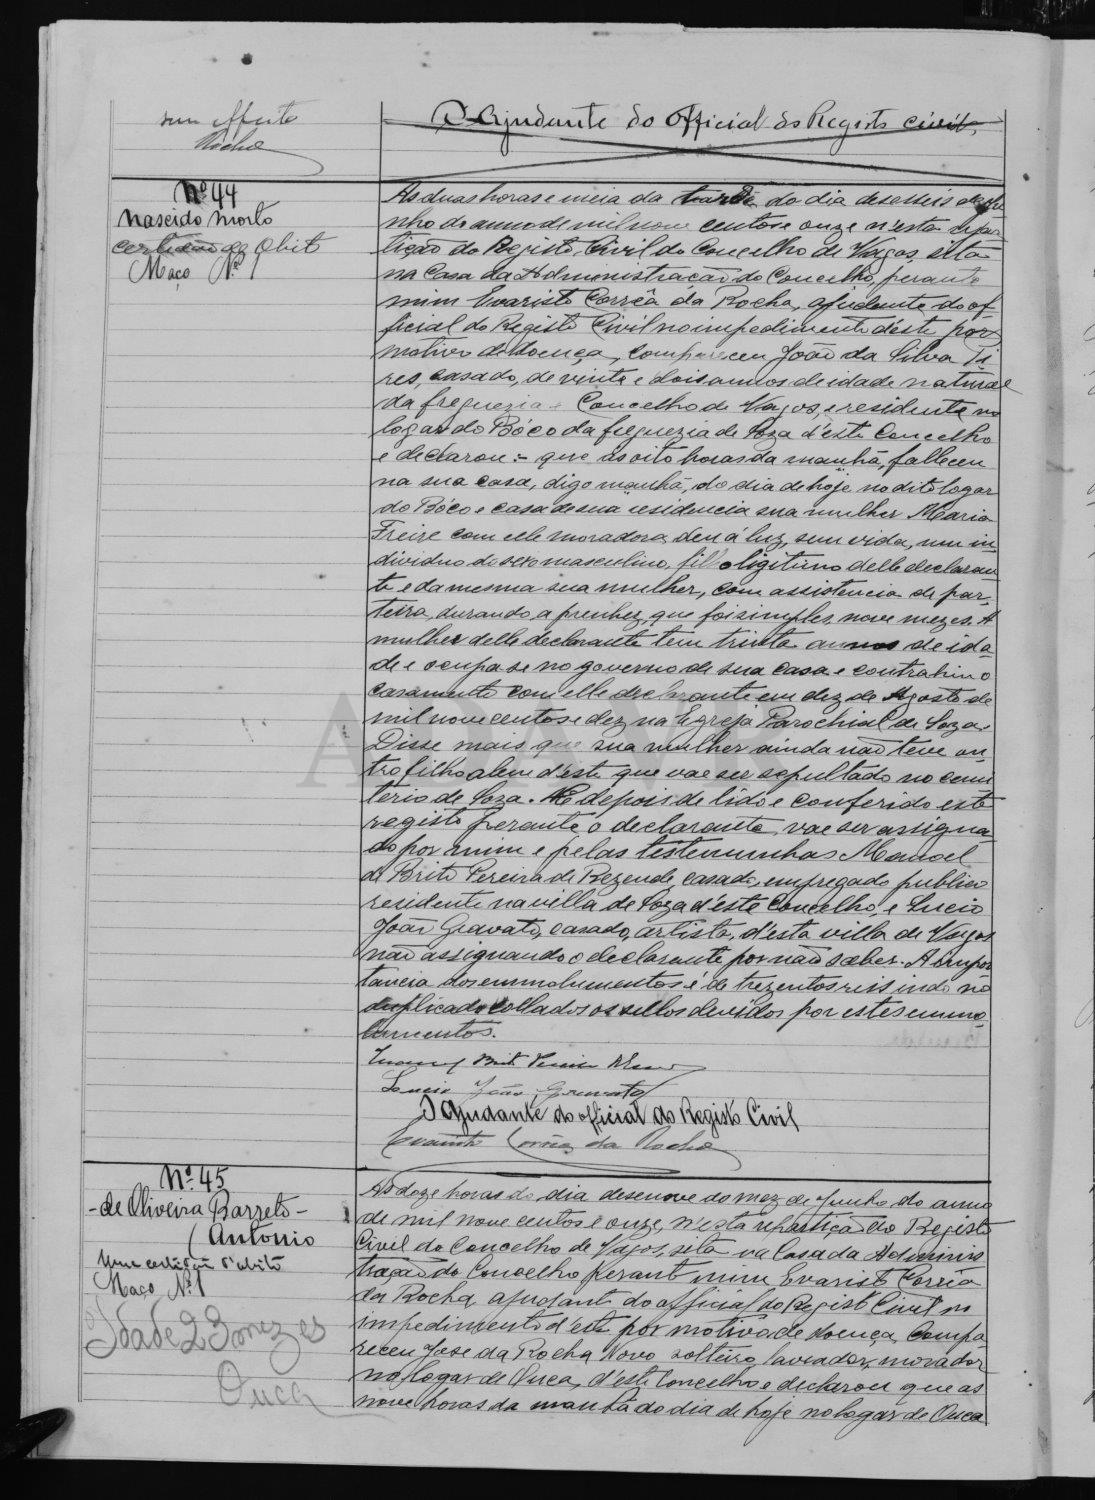 sem effeito
Rocha
O Ajudante do Official do Registo Civil,
Nº 44
Nascido Morto
certidão de Obito
Maço Nº 1
As duas horas e meia da tarde do dia deseseis de Ju-
nho do anno de mil nove centos e onze n'esta repar-
tição do Registo Civil do Concelho de Vagos, sita
na Casa da Administração do Concelho, perante
mim Evaristo Corrêa da Rocha, ajudante do of-
ficial do Registo Civil no impedimento d'este por
motivo de doença, compareceu João da Silva Ti-
res, casado, de vinte e dois annos de idade natural
da freguezia e Concelho de Vagos, e residente no
logar do Bóco da freguezia de Soza d'este Concelho
e declarou:= que ás oito horas da manhã, falleceu
na sua casa, digo manhã, do dia de hoje no dito logar
do Bóco e casa de sua residencia sua mulher Maria
Freire com elle moradora, deu á luz, sem vida, um in-
dividuo do sexo masculino, filho legitimo delle declaran-
te e da mesma sua mulher, com assistencia de par-
teira, durando a prenhez, que foi simples, nove mezes. A
mulher delle declarante tem trinta annos de ida-
de e ocupa-se no governo de sua casa e contrahiu o
casamento com elle declarante em dez de Agosto de
mil nove centos e dez na Egreja Parochial de Soza.
Disse mais que sua mulher ainda não teve ou-
tro filho alem d'este que vae ser sepultado no cemi-
terio de Soza. E depois de lido e conferido este
registo perante o declarante, vae ser assigna-
do por mim e pelas testemunhas Manoel
de Brito Pereira de Rezende casado, empregado publico
residente na villa de Soza d'este Concelho, e Lucio
João Gravato, casado, artista, d'esta villa de Vagos
não assignando o declarante por não saber. A impor-
tancia dos emmolumentos é de trezentos reis indo no
duplicado collados os sellos devidos por estes emmo-
lumentos.
Lucio João Gravato
O Ajudante do official do Registo Civil
Evaristo Corrêa da Rocha
Nº 45
-de Oliveira Barreto-
(Antonio
Uma certidão d'obito
Maço Nº 1
Idade 23 mezes
Ouca
As doze horas do dia desenove do mez de Junho do anno
de mil nove centos e onze, n'esta repartição do Registo
Civil do Concelho de Vagos, sita na Casa da Adminis-
tração do Concelho perante mim Evaristo Corrêa
da Rocha, ajudante do official do Registo Civil no
impedimento d'este por motivo de doença, compa-
receu Jose da Rocha Novo solteiro, lavrador, morador
no logar de Ouca, d'este Concelho e declarou que as
nove horas da manhã do dia de hoje no logar de Ouca